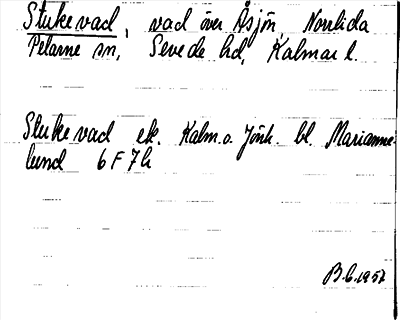 Stukevad, vad över Åsjön, Norrlida
Pelarne sn, Sevede hd, Kalmar l.
Stukevad ek. Kalm. o. Jönk. bl. Marianne-
lund 6 F 7 h